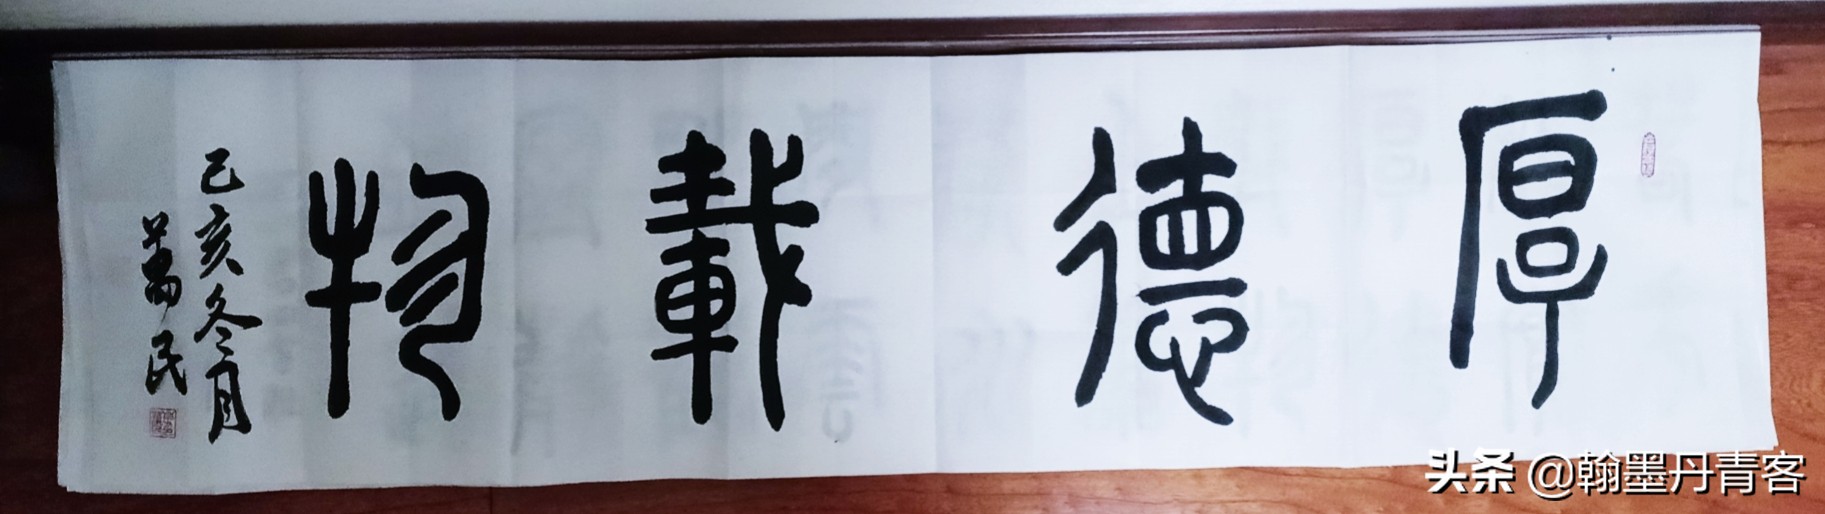 厚德載物
己亥冬月
萬民
头条 @翰墨丹青客